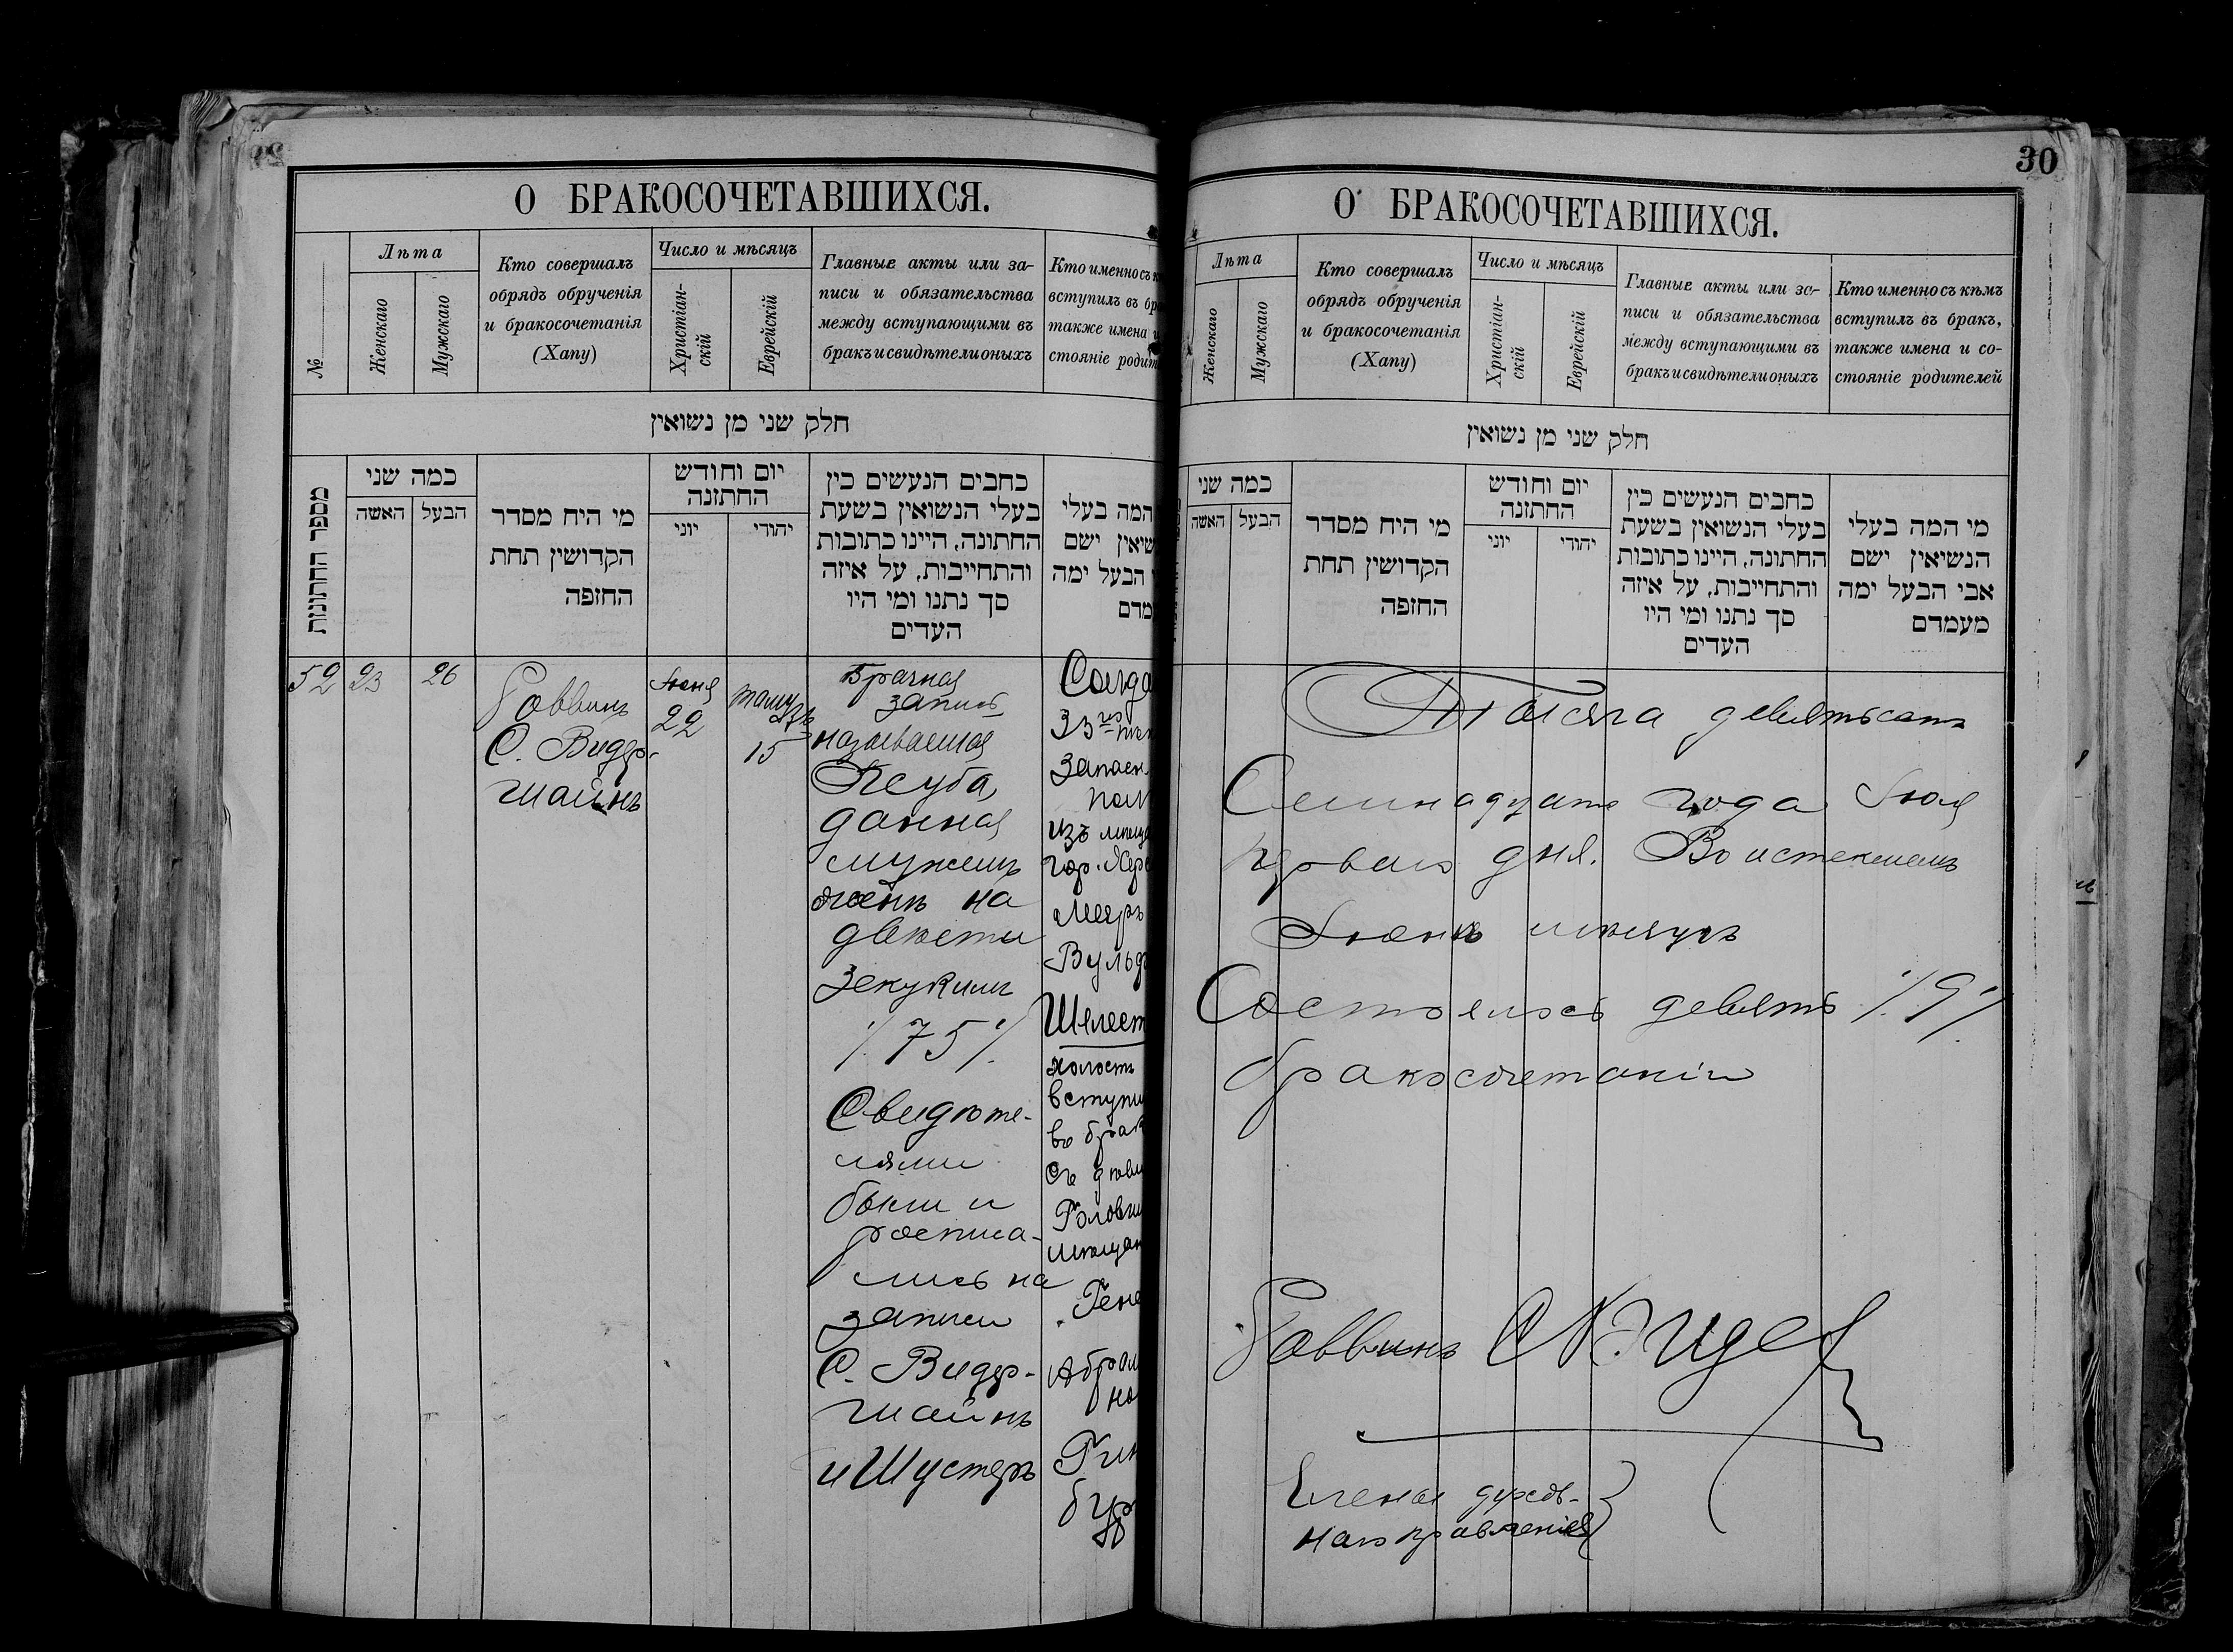 О БРАКОСОЧЕТАВШИХСЯ.
№
Лѣта
Женскаго
Мужскаго
Кто совершалъ
обрядъ обрученія
и бракосочетанія
(Хапу)
Число и мѣсяцъ
Христіан-
скій
Еврейскій
Главные акты или за-
писи и обязательства
между вступающими въ
бракъ и свидѣтели оныхъ
Кто именно съ к
вступилъ въ бр
также имена и
стояніе родит
חלק שני מן נשואין
מספר החתונות
כמה שני
האשה
הבעל
מי היח מסדר
הקדושין תחת
החזפה
יום וחודש
החתזנה
יוני
יהודי
כחבים הנעשים כין
בעלי הנשואין בשעת
החתונה, היינו כתובות
והתחייבות, על איזה
סך נתנו ומי היו
העדים
המה בעלי
שיאין ישם
הבעל ימה
מדם
52
23
26
Раввинъ
С. Видер-
шайнъ
Іюня
22
Тамузъ
15
Брачная
запись
называемая
Ксуба,
данная
мужемъ
женѣ на
двѣсти
зекукимъ
/.75/.
Свидѣте-
лями
были и
росписа-
лись на
записи
С. Видер-
шайнъ
и Шустеръ
Солда
33го пѣх
Запасн
пол
изъ мѣщ
гор. Хер
Мееръ
Вульф
Шелест
холостъ
вступи
въ брак
съ дѣви
Головн
мѣщан
Гене
Абрам
но
Гин
бур
30
О БРАКОСОЧЕТАВШИХСЯ.
Лѣта
Женскаго
Мужскаго
Кто совершалъ
обрядъ обрученія
и бракосочетанія
(Хапу)
Число и мѣсяцъ
Христіан-
скій
Еврейскій
Главные акты или за-
писи и обязательства
между вступающими въ
бракъ и свидѣтели оныхъ
Кто именно съ кѣмъ
вступилъ въ бракъ,
также имена и со-
стояніе родителей
חלק שני מן נשואין
כמה שני
האשה
הבעל
מי היח מסדר
הקדושין תחת
החזפה
יום וחודש
החתזנה
יוני
יהודי
כחבים הנעשים כין
בעלי הנשואין בשעת
החתונה, היינו כתובות
והתחייבות, על איזה
סך נתנו ומי היו
העדים
מי המה בעלי
הנשיאין ישם
אבי הבעל ימה
מעמדם
Тысяча девятьсотъ
Семнадцать года Іюля
перваго дня. Во истекшемъ
Іюнѣ мѣсяцѣ
Состоялось девять /.9/.
бракосочетаніи
Раввинъ
Членъ духов-
наго правленія